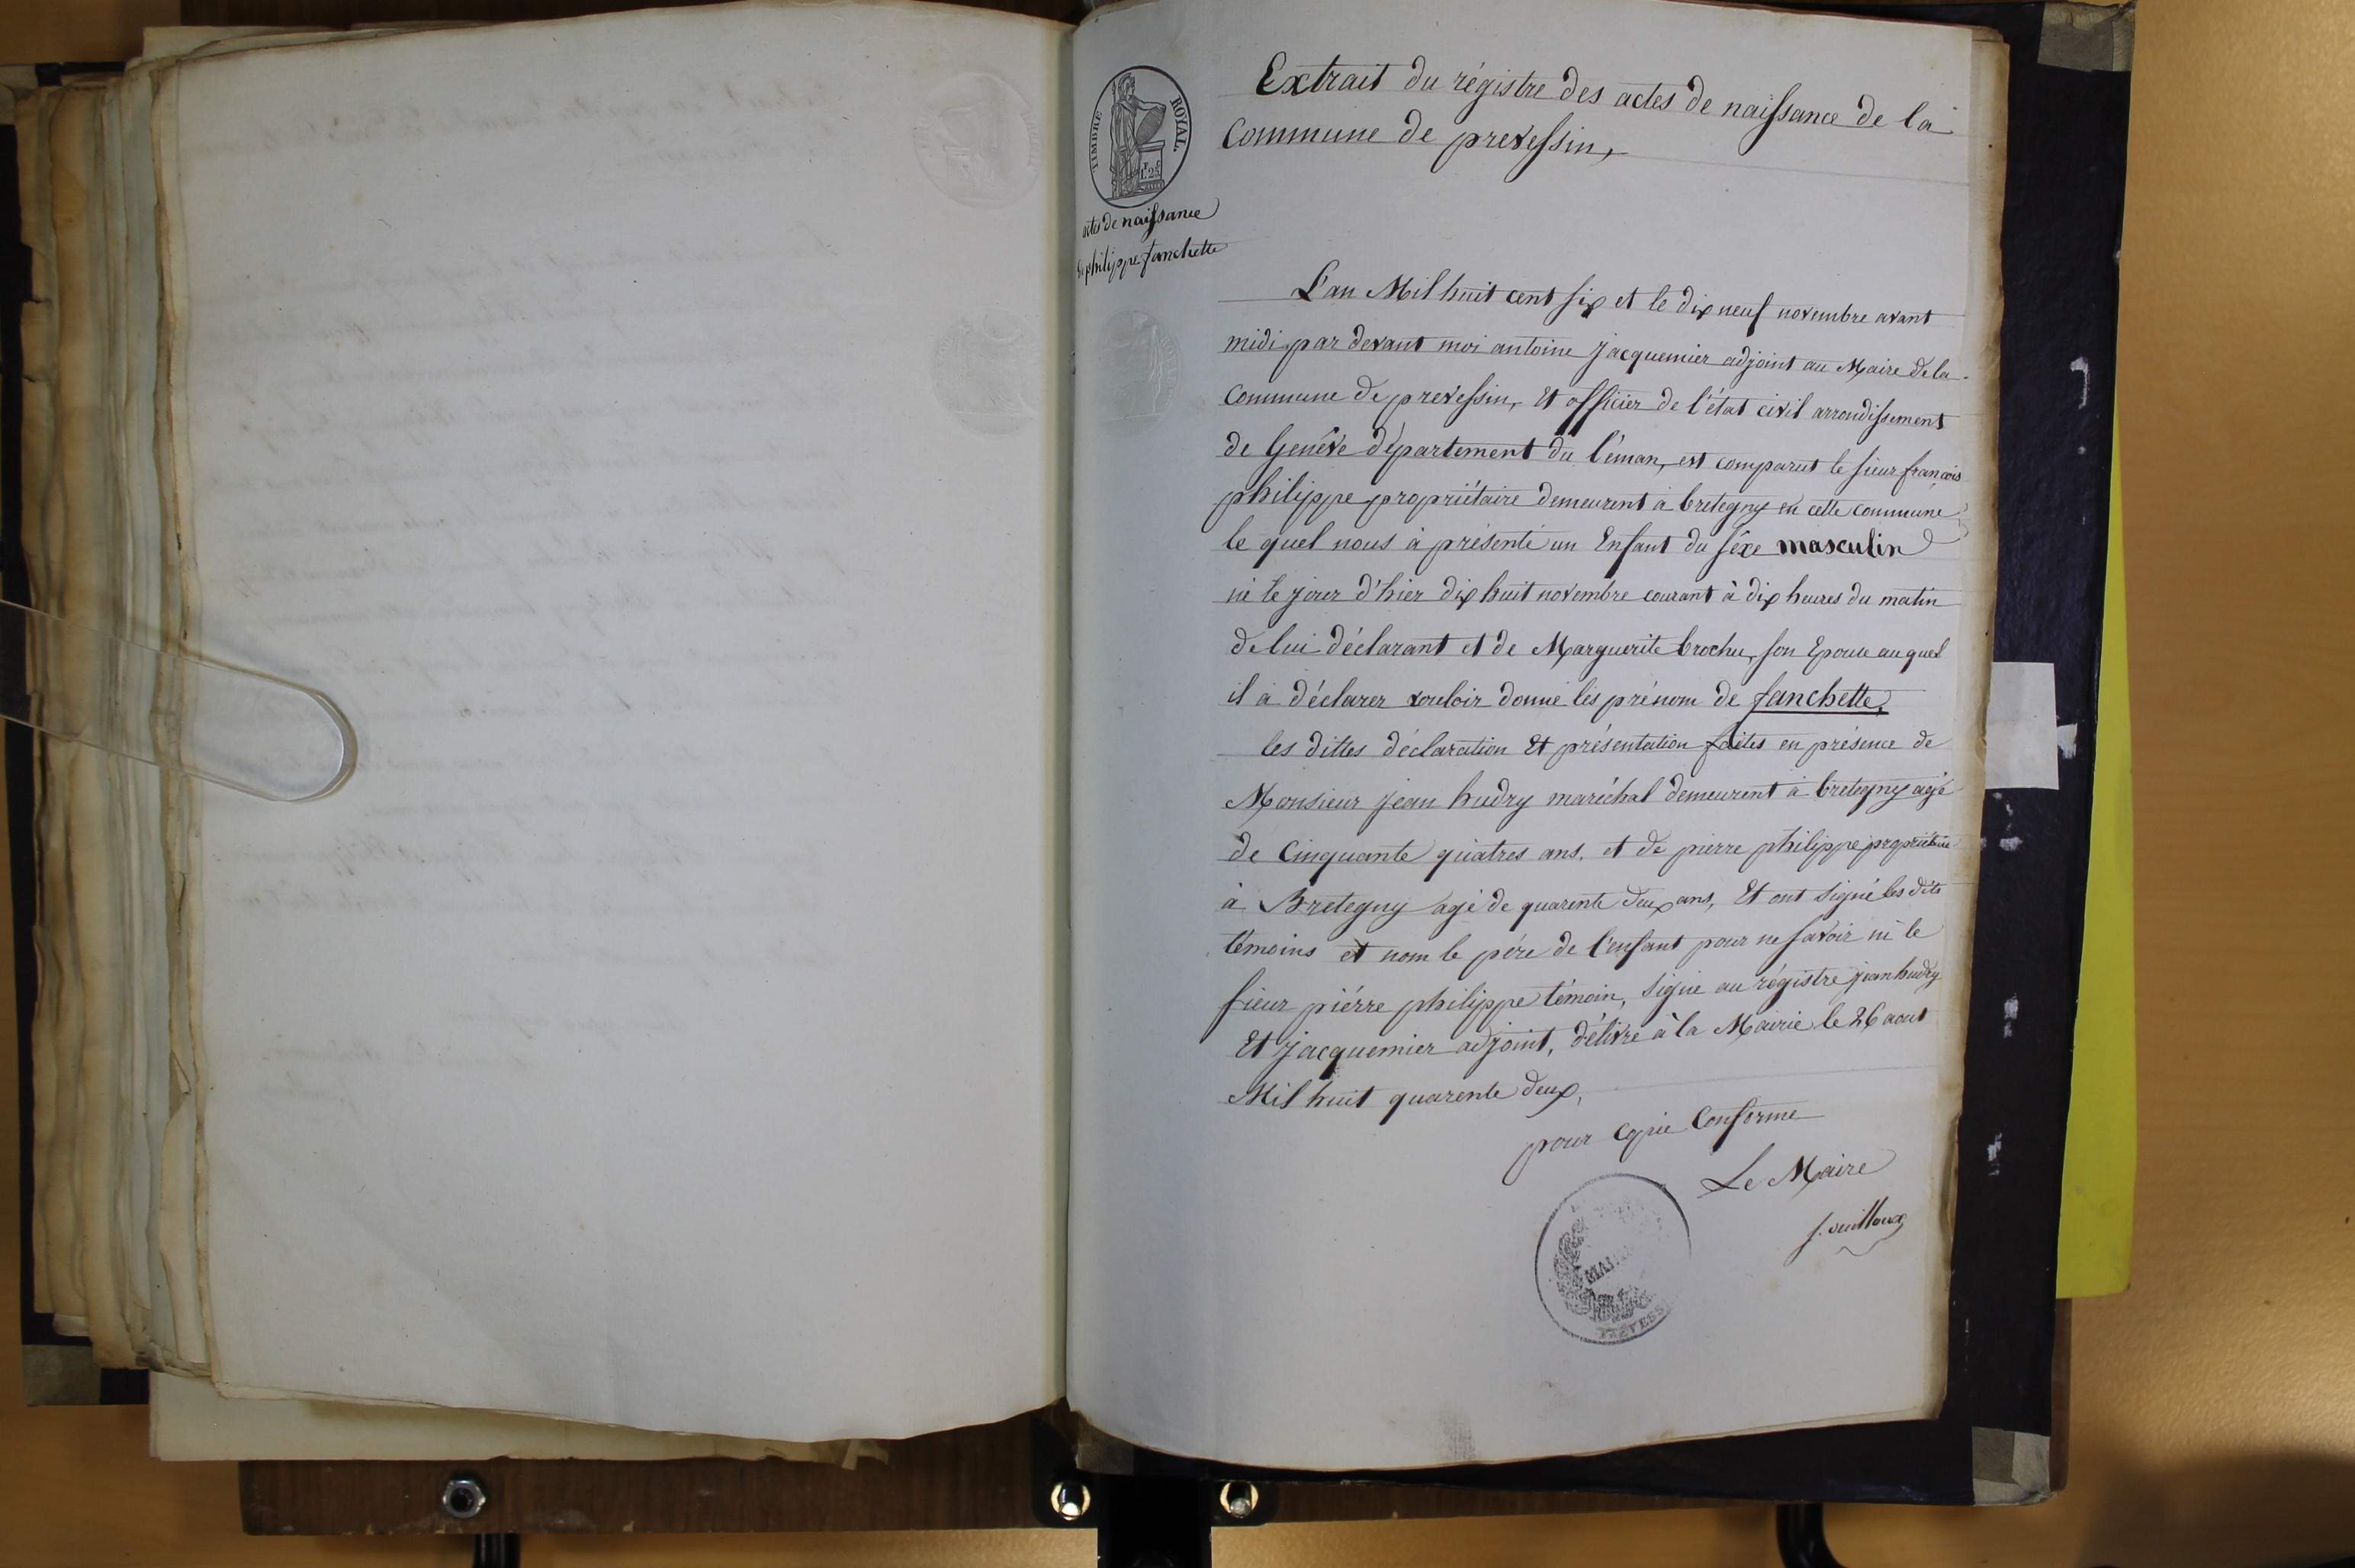 TIMBRE ROYAL.
actes de naissance
de philippe fanchette
Extrait du régistre des actes de naissance de la
Commune de prevessin,
L'an Mil huit cent six et le dix neuf novembre avant
midi par devant moi antoine Jacquemier adjoint au Maire de la
Commune de prevessin, et officier de l'état civil arrondissement
de Genève département du léman, est comparut le sieur françois
philippe propriétaire demeurent à bretegny en cette commune
le quel nous à présenté un Enfant du séxe masculin
né le jour d'hier dix huit novembre courant à dix heures du matin
de lui déclarant et de Marguerite brochu, son Epouse au quel
il à déclarer vouloir donné les prénom de fanchette,
les dittes déclaration Et présentation faites en présence de
Monsieur jean hudry maréchal demeurent à bretegny agé
de Cinquante quiatres ans, et de pierre philippe propriétaire
à Bretegny agé de quarente deux ans, Et ont signé les dits
témoins et nom le pére de l'enfant pour ne savoir ni le
sieur piérre philippe témoin, signé au régistre jean hudry
Et Jacquemier adjoint, délivré à la Mairie le 26 aout
Mil huit quarente deux,
pour copie Conforme
Le Maire